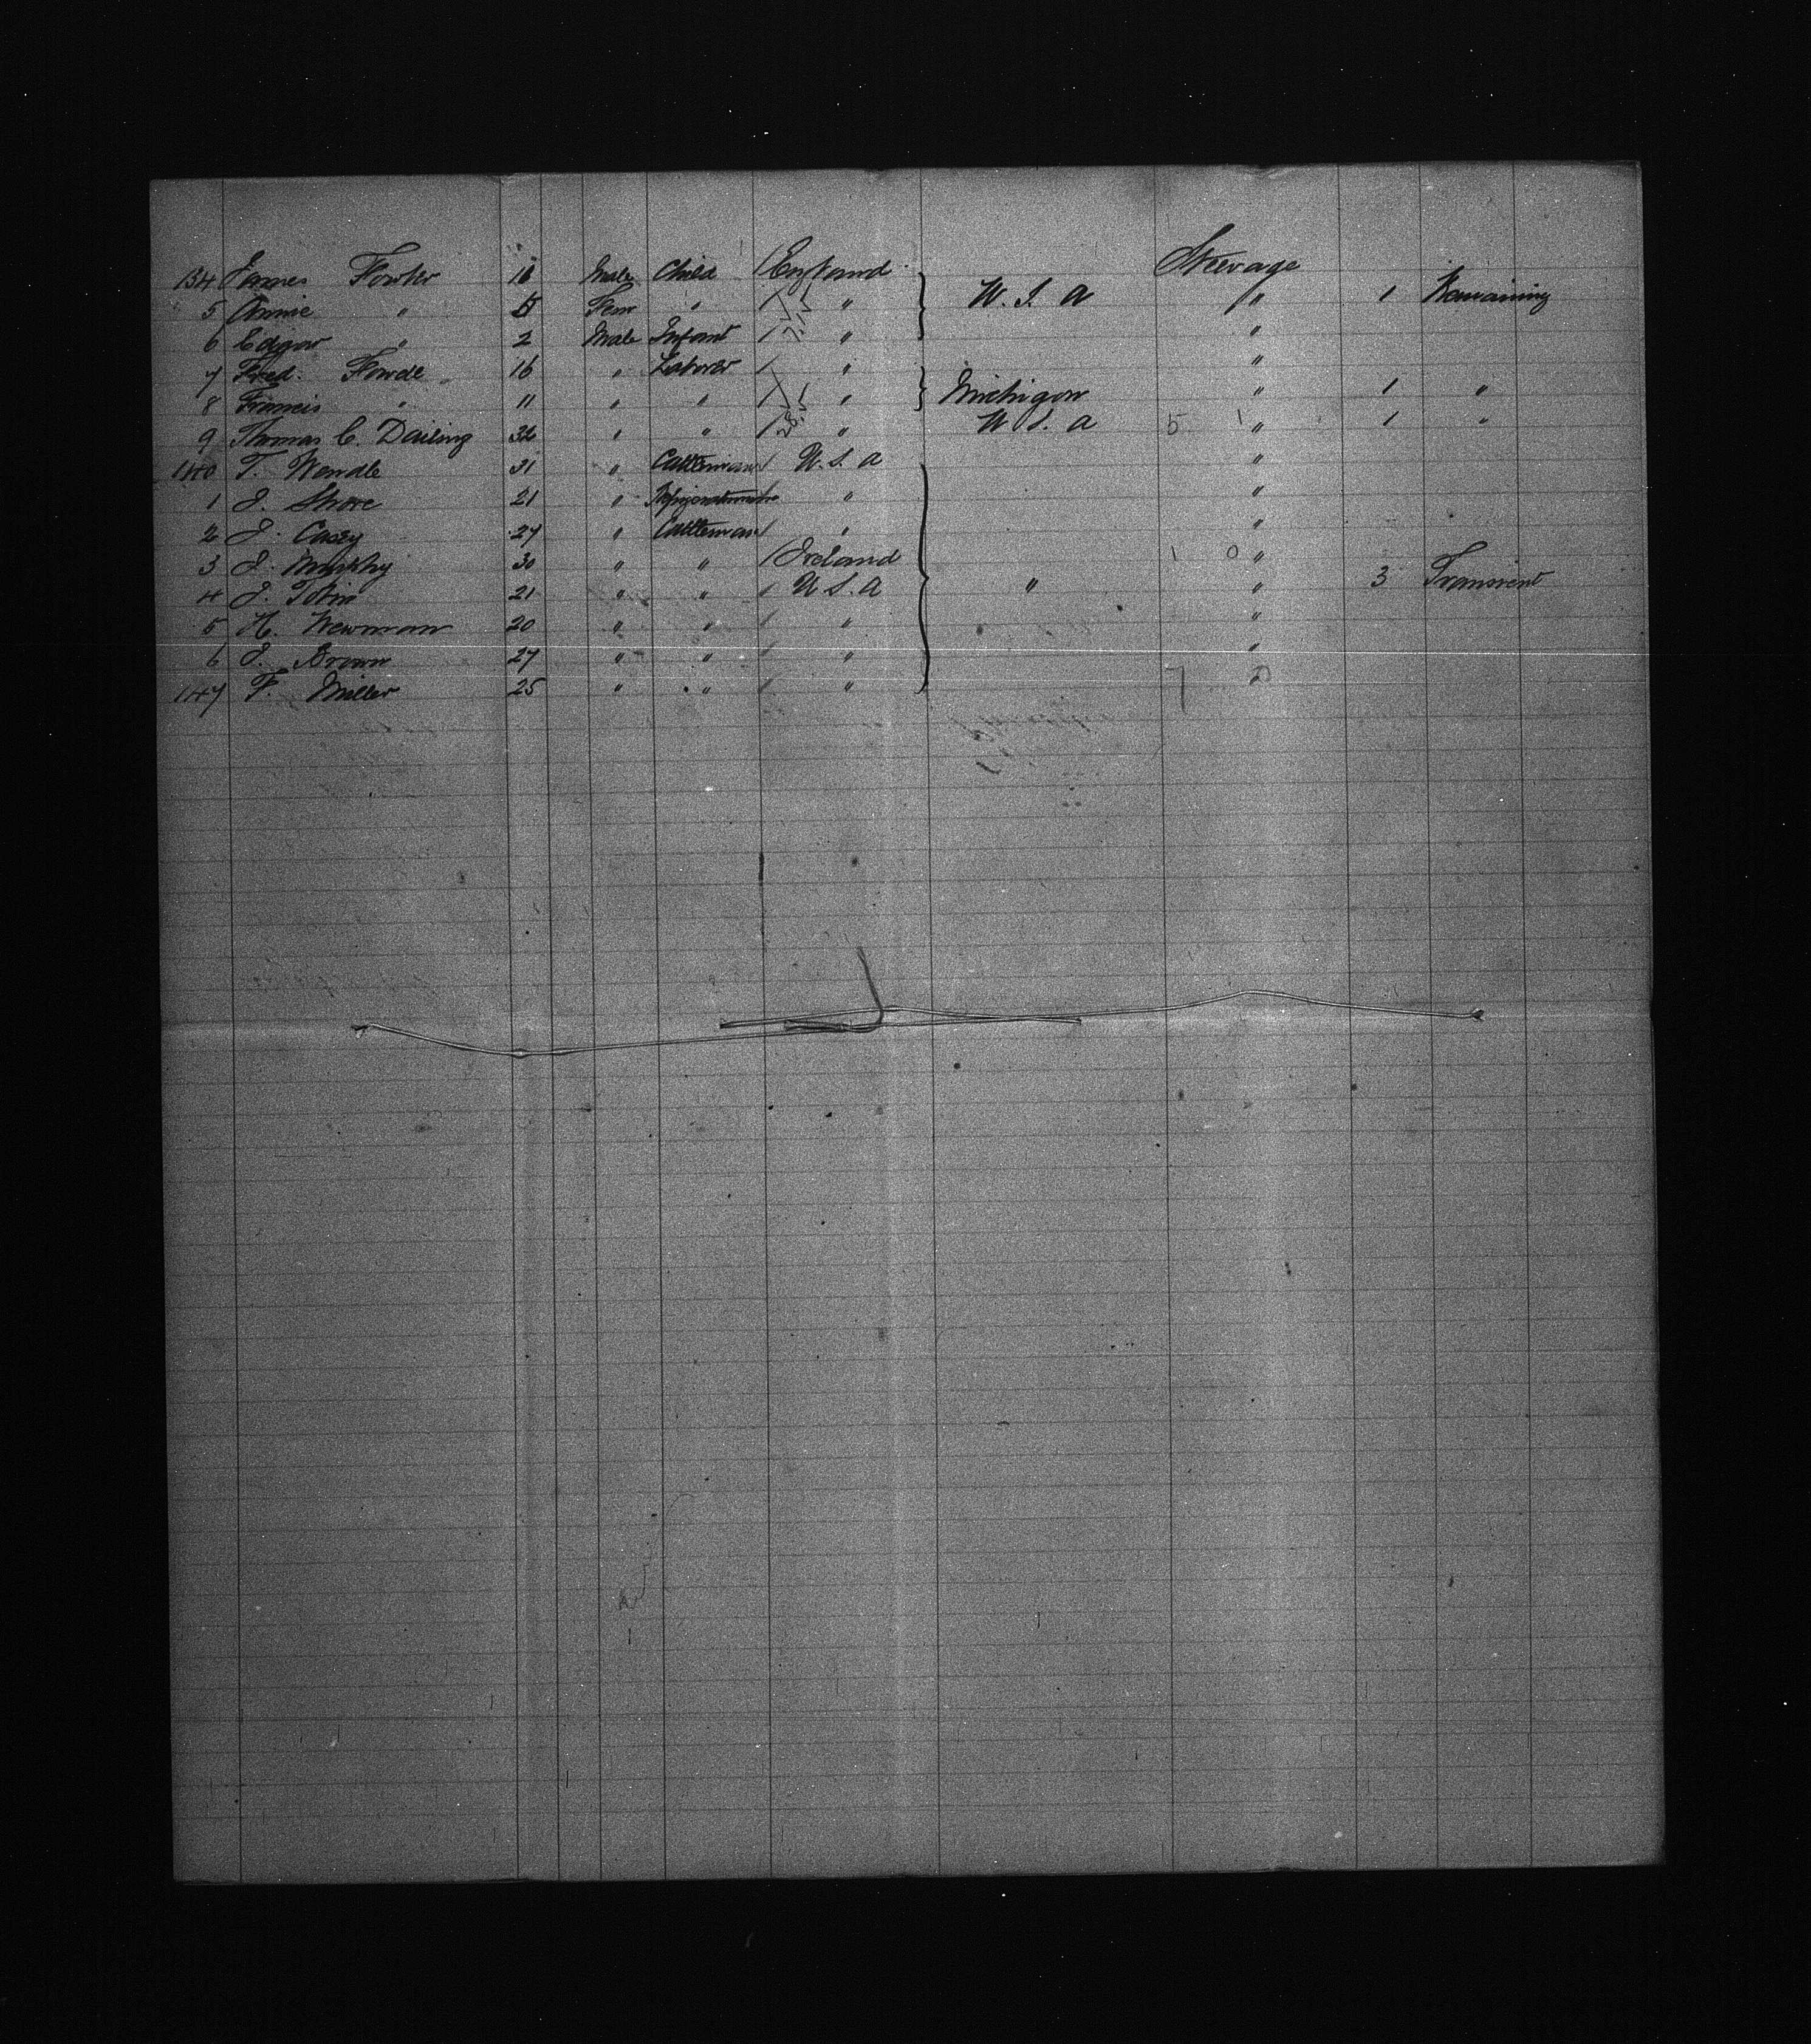 134 James Fowler 10 Male Child / England Steerage
5 Annie " Fem " / " U. S. A " 1 Remaining
6 Edgar " 2 Male Infant / " "
7 Fred. Fowde 16 " Laborer / " "
8 Francis " 11 " " / " Michigan " 1 "
9 Thomas C. Dailing 32 " " / " U S. A 5 1 " 1 "
140 T. Wendle 31 " Cattleman / U. S. A "
1 J. Shore 21 " "
2 J. Casey 27 " Cattleman / " "
3 J. Murphy 30 " " / Ireland 1 0 "
4 J. Tobin 21 " " / U S. A " " 3 Transient
5 H. Newman 20 " " / " "
6 J. Brown 27 " " / " "
147 F. Miller 25 " " / " 7